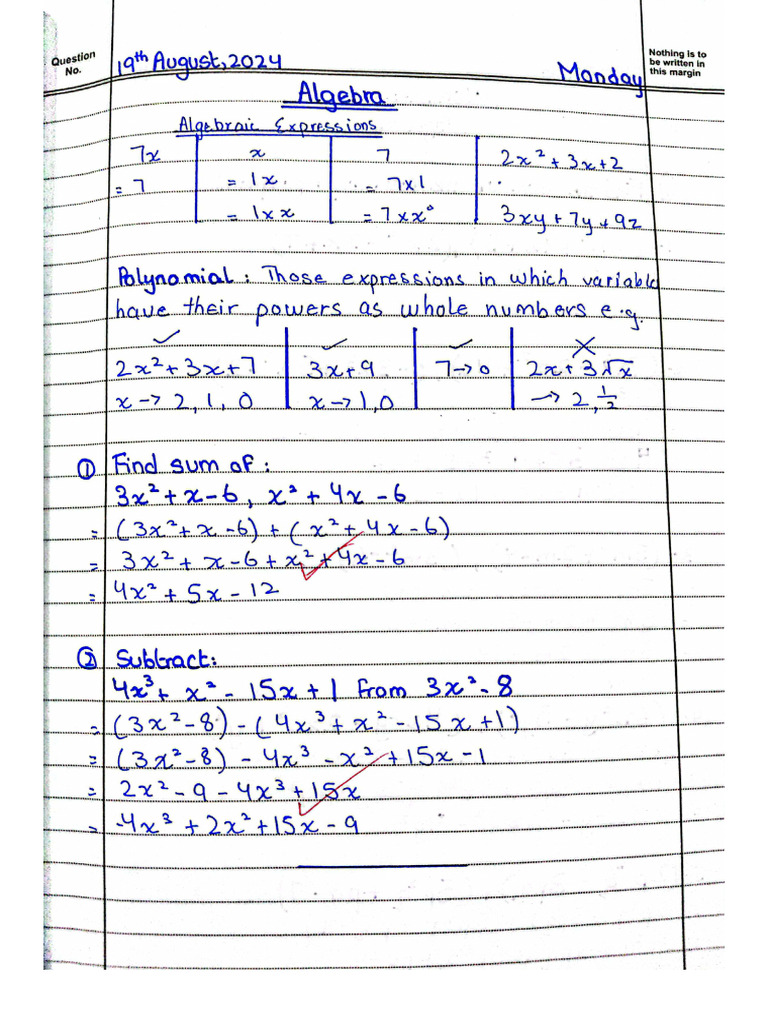 Question No. 19th August, 2024 Monday Nothing is to be written in this margin
Algebra
Algebraic Expressions
7x | x | 7 | 2x² + 3x + 2
= 7 | = 1x | = 7x1
= 1xx | = 7xx⁰ | 3xy + 7y + 9z
Polynomial : Those expressions in which variable
have their powers as whole numbers e.g.
✓ ✓ ✓ ✗
2x² + 3x + 7 | 3x + 9 | 7 → 0 | 2x + 3√x
x → 2, 1, 0 | x → 1, 0 | → 2, 1/2
① Find sum of :
3x² + x - 6, x² + 4x - 6
= (3x² + x - 6) + (x² + 4x - 6)
= 3x² + x - 6 + x² + 4x - 6
= 4x² + 5x - 12
② Subtract:
4x³ + x² - 15x + 1 from 3x² - 8
= (3x² - 8) - (4x³ + x² - 15x + 1)
= (3x² - 8) - 4x³ - x² + 15x - 1
= 2x² - 9 - 4x³ + 15x
= -4x³ + 2x² + 15x - 9